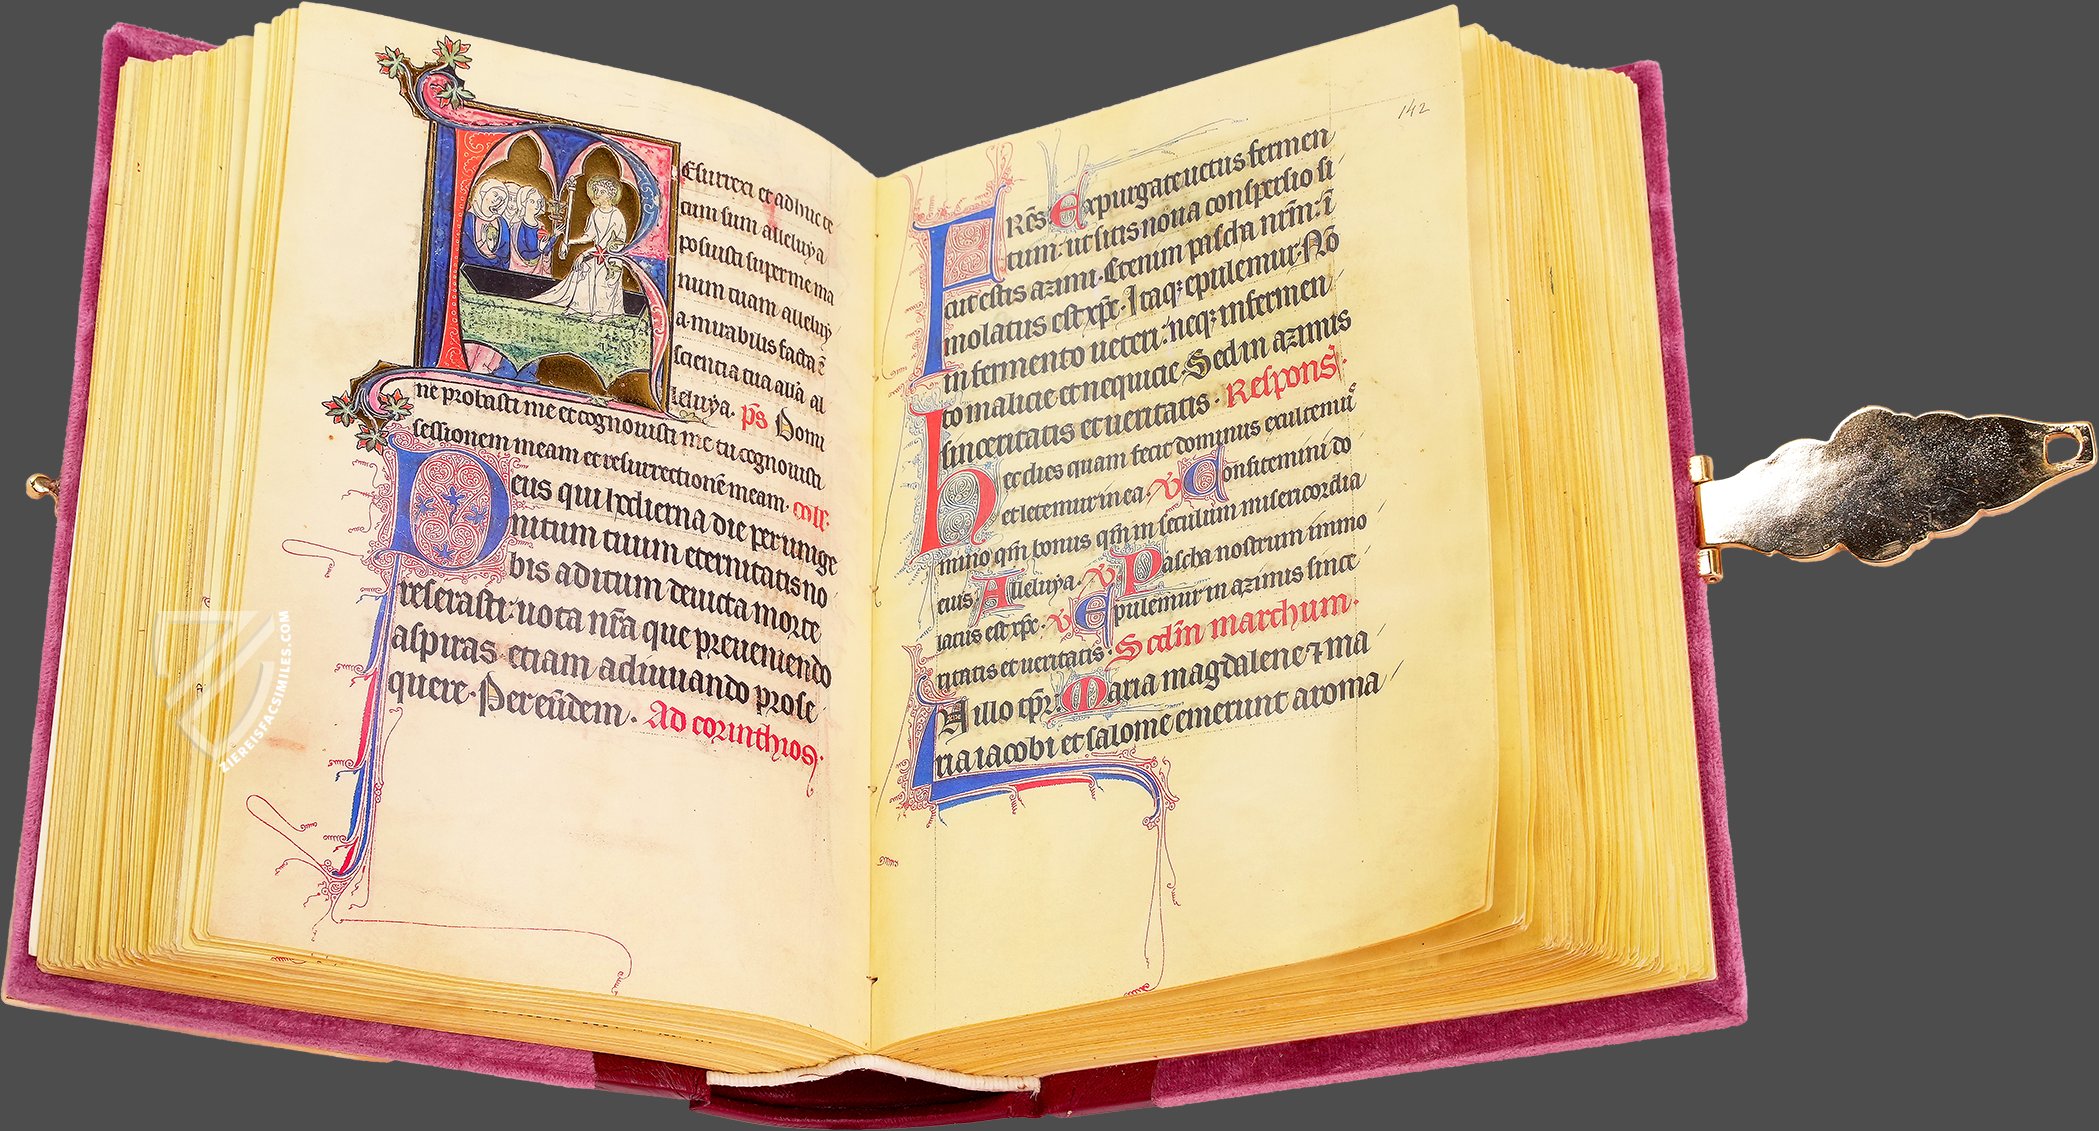 Esurrexi et adhuc te
cum sum alleluya
posuisti super me ma
num tuam alleluy
a mirabilis facta ē
sciencia tua all'a al
leluya. ps Domi
ne probasti me et cognovisti me tu cognovisti
sessionem meam et resurrectionē meam. coll.
Deus qui hodierna die per unige
nitum tuum eternitatis no
bis aditum devicta morte
reserasti: vota nr̄a que preveniendo
aspiras. etiam adiuvando prose
quere. Per eūdem. Ad corinthios.
ZIEREISFACSIMILES.COM
142
Frēs Expurgate vetus fermen
tum: ut sitis nova conspersio si
cut estis azimi. Etenim pascha nr̄m: ī
molatus est xp̄c. Itaq; epulemur. Nō
in fermento veteri: neq; in fermen
to malicie et nequicie. Sed in azimis
sinceritatis et veritatis. Respons.
hec dies quam fecit dominus exultemus
et letemur in ea. V Confitemini do
mino qm̄ bonus qm̄ in seculum misericordia
eius. Alleluya. V Pascha nostrum immo
latus est xp̄c. V Epulemur in azimis since
ritatis et veritatis. Scd̄m marchum.
In illo tp̄r. Maria magdalene ⁊ ma
ria iacobi et salome emerunt aroma